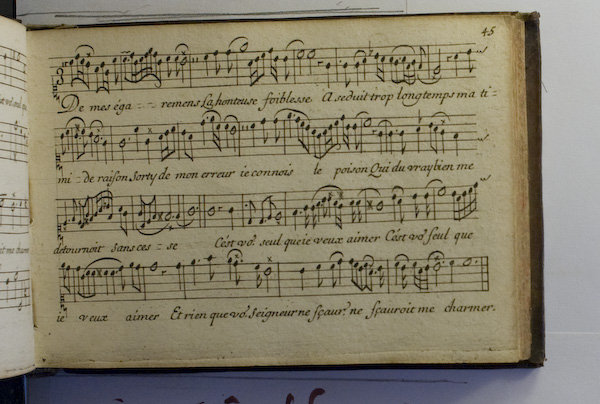 45
De mes éga - - remens La honteuse foiblesse A seduit trop longtemps ma ti =
mi = de raison Sorty de mon erreur ie connois le poison Qui du vray bien me
détournoit sans ces = se C'ést vo9. seul que ie veux aimer C'ést vo9 seul que
ie veux aimer Et rien que vo9. Seigneur ne sçaur9. ne sçauroit me charmer.